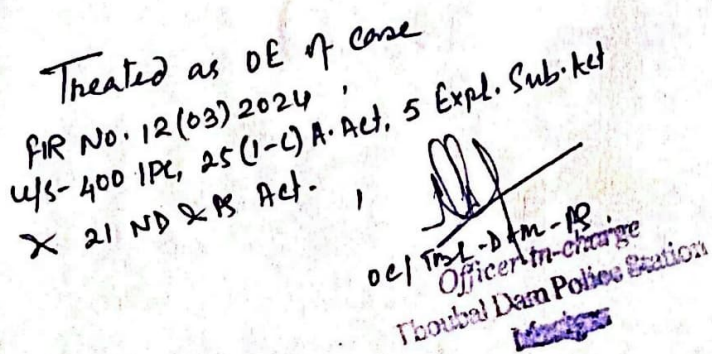 Treated as OE of case
FIR No. 12(03)2024,
u/s- 400 IPC, 25(1-C) A. Act, 5 Expl. Sub. Act
& 21 ND & PS Act.
OC/ TBL-DAM-PS.
Officer-in-charge
Thoubal Dam Police Station
Manipur